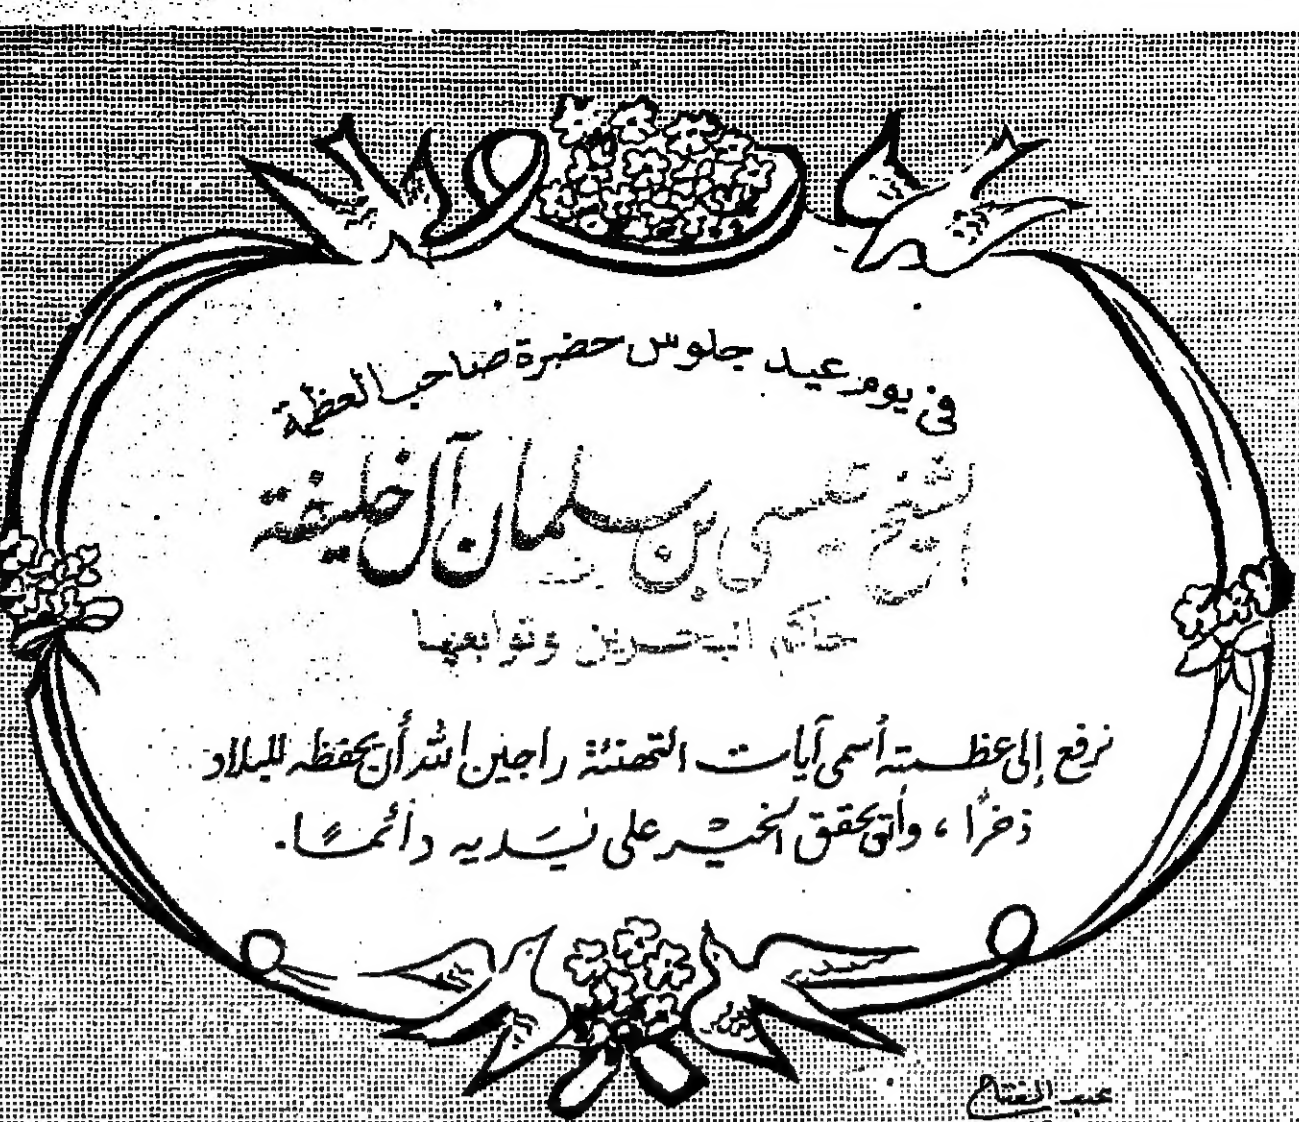 في يوم عيد جلوس حضرة صاحب العظمة
الشيخ عيسى بن سلمان آل خليفة
حاكم البحرين وتوابعها
نرفع إلى عظمته أسمى آيات التهنئة راجين الله أن يحفظه للبلاد
ذخرًا، وأن يحقق الخير على يديه دائمًا.
عبد الفتاح